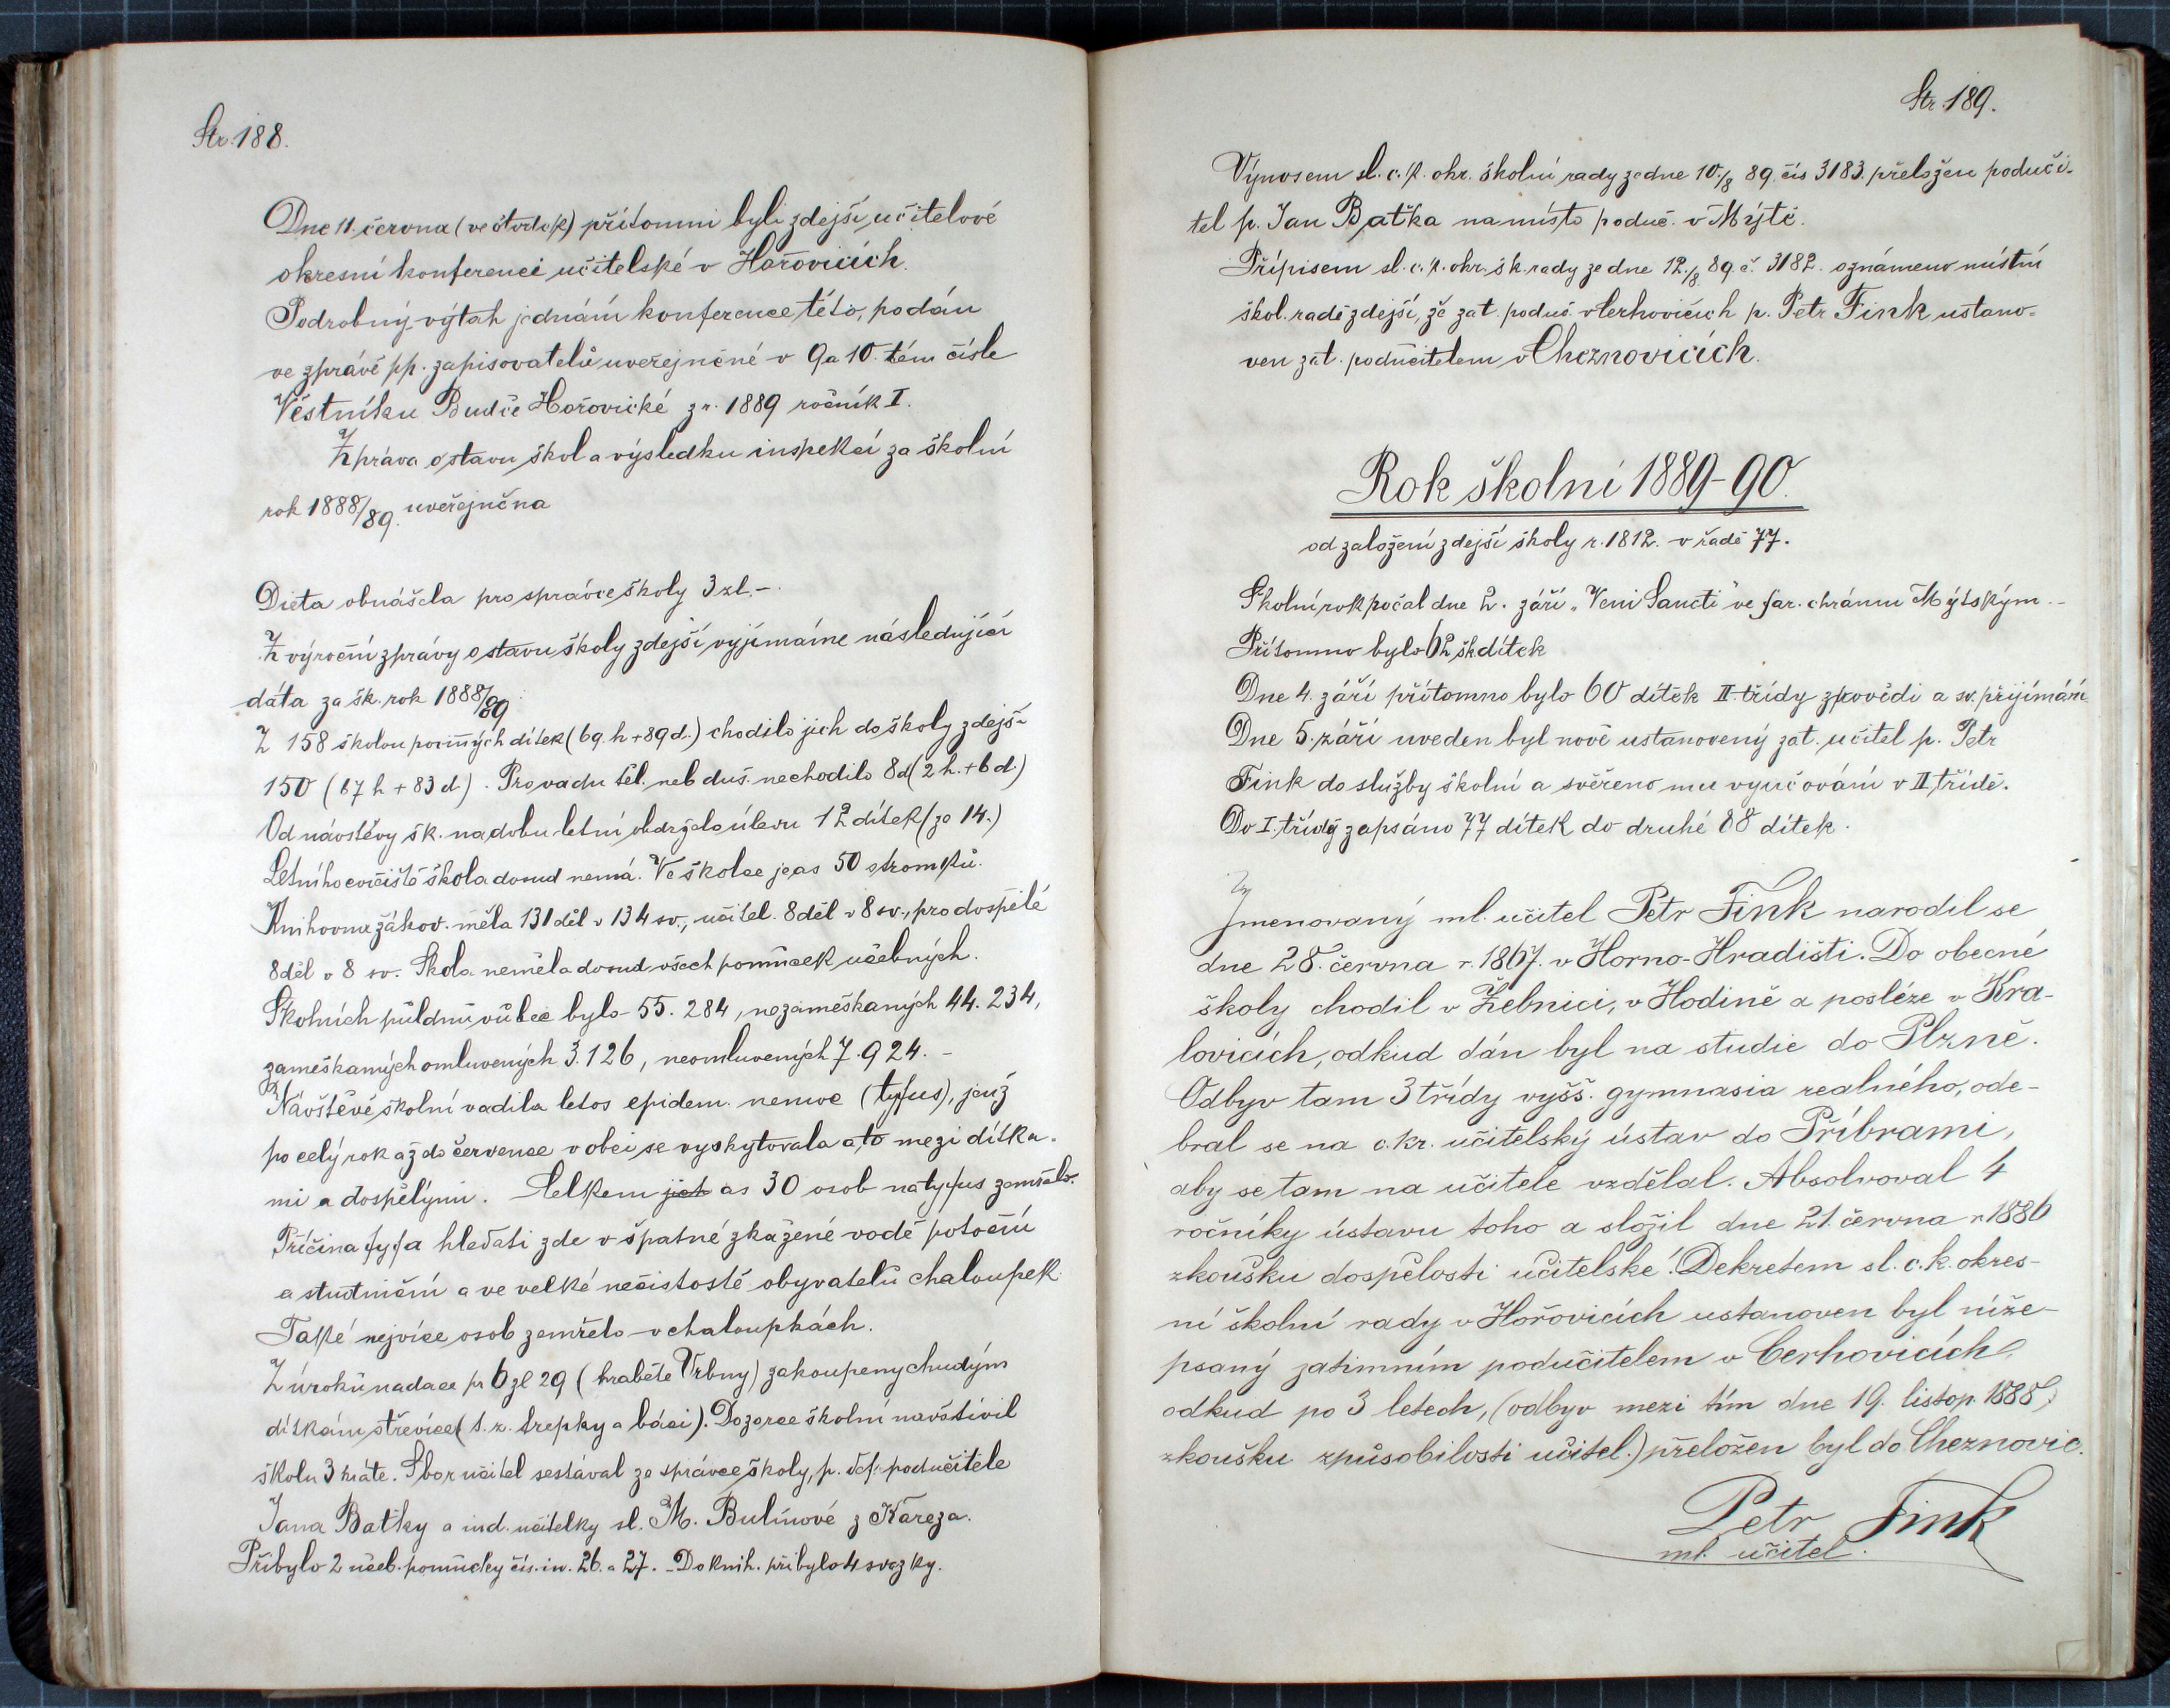 Str. 188.
Dne 11. června (ve čtvrtek) přítomni byli zdejší učitelové
okresní konferenci učitelské v Hořovicích.
Podrobný výtah jednání konference této, podán
ve zprávě pp. zapisovatelů uveřejněné v 9 a 10. tém čísle
Věstníku Budče Hořovické z r. 1889 ročník I.
Zpráva o stavu škol a výsledku inspekcí za školní
rok 1888/89. uveřejněna
Dieta obnášela pro správce školy 3 zl. –
Z výroční zprávy o stavu školy zdejší vyjímáme následující
dáta za šk. rok 1888/89:
Z 158 školou povinných dítek (69. h + 89 d.) chodilo jich do školy zdejší
150 (67 h + 83 d). Pro vadu těl. neb duš. nechodilo 8 d (2 h. + 6 d.)
Od návštěvy šk. na dobu letní obdrželo úlevu 12 dítek (ze 14.)
Letního cvičiště škola dosud nemá. Ve školce je as 50 stromků.
Knihovna žákov. měla 131 děl v 134 sv., učitel. 8 děl v 8 sv., pro dospělé
8 děl v 8 sv. Škola neměla dosud všech pomůcek učebných.
Školních půldnů vůbec bylo 55.284, nezameškaných 44.234,
zameškaných omluvených 3.126, neomluvených 7.924. –
Návštěvě školní vadila letos epidem. nemoc (tyfus), jenž
po celý rok až do července v obci se vyskytovala a to mezi dítka-
mi a dospělými. Celkem jich as 30 osob na tyfus zemřelo.
Příčina tyfa hledati zde v špatné zkažené vodě potoční
a studniční a ve velké nečistotě obyvatelů chaloupek.
Také nejvíce osob zemřelo v chaloupkách.
Z úroků nadace pr 6 zl 29 (hraběte Vrbny) zakoupeny chudým
dítkám střevíce (t. z. trepky a báci). Dozorce školní navštívil
školu 3 kráte. Sbor učitel sestával ze správce školy, p. def. podučitele
Jana Baťky a ind. učitelky sl. M. Bulínové z Kařeza.
Přibylo 2 učeb. pomůcky čís. in. 26. a 27. – Do knih. přibylo 4 svazky.
Str. 189.
Výnosem sl. c. k. okr. školní rady ze dne 10./8 89. čís 3183. přeložen poduči-
tel p. Jan Baťka na místo poduč. v Mýtě.
Přípisem sl. c. k. okr. šk. rady ze dne 12./8 89. č. 3182. oznámeno místní
škol. radě zdejší, že zat. poduč. v Cerhovicích p. Petr Fink ustano-
ven zat. podučitelem v Cheznovicích.
Rok školní 1889–90.
od založení zdejší školy r. 1812. v řadě 77.
Školní rok počal dne 2. září „Veni Sancti" ve far. chrámu Mýtským. –
Přítomno bylo 62 šk. dítek
Dne 4. září přítomno bylo 60 dítek II. třídy zpovědi a sv. přijímání.
Dne 5. září uveden byl nově ustanovený zat. učitel p. Petr
Fink do služby školní a svěřeno mu vyučování v II. třídě.
Do I. třídy zapsáno 77 dítek do druhé 88 dítek.
Jmenovaný ml. učitel Petr Fink narodil se
dne 28. června r. 1867. v Horno-Hradišti. Do obecné
školy chodil v Žebnici, v Hodině a posléze v Kra-
lovicích, odkud dán byl na studie do Plzně.
Odbyv tam 3 třídy vyšš. gymnasia realného, ode-
bral se na c. kr. učitelský ústav do Příbrami,
aby se tam na učitele vzdělal. Absolvoval 4
ročníky ústavu toho a složil dne 21. června r 1886
zkoušku dospělosti učitelské. Dekretem sl. c. k. okres-
ní školní rady v Hořovicích ustanoven byl níže-
psaný zatimním podučitelem v Cerhovicích,
odkud po 3 letech, (odbyv mezi tím dne 19. listop. 1888,
zkoušku způsobilosti učitel.) přeložen byl do Cheznovic.
Petr Fink
ml. učitel.